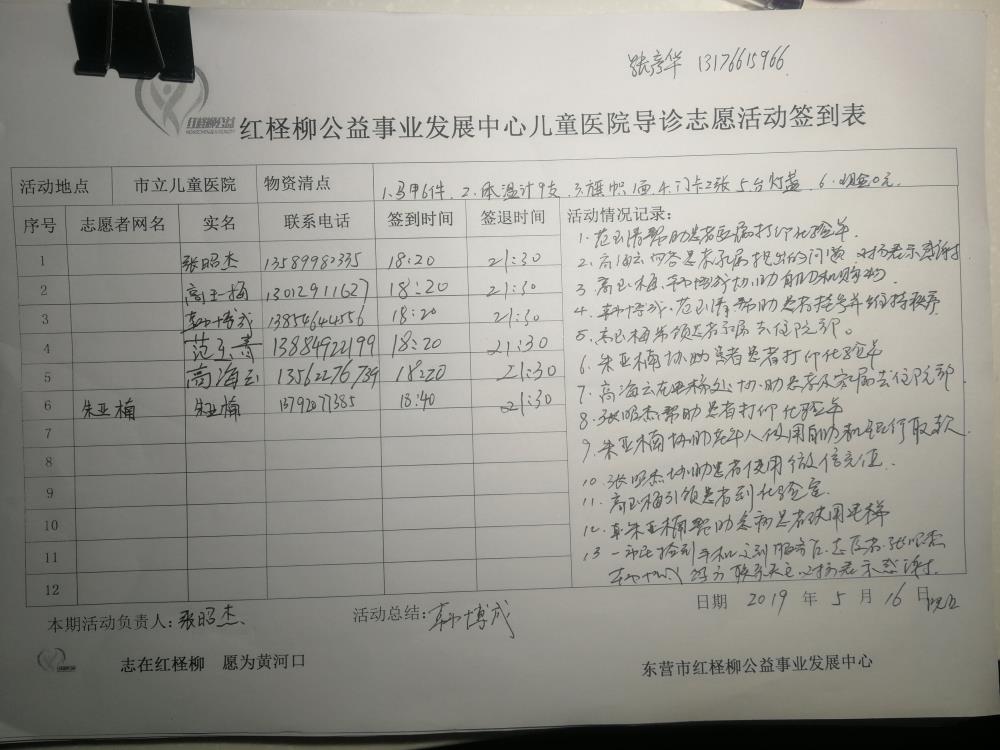 张彦华 13176615966
红柽柳公益
红柽柳公益事业发展中心儿童医院导诊志愿活动签到表
活动地点 市立儿童医院 物资清点 1.马甲6件. 2.体温计9支. 3.旗帜1面. 4.门卡2张 5.台灯1盏. 6.现金0元.
序号 志愿者网名 实名 联系电话 签到时间 签退时间 活动情况记录:
1 张昭杰 13589982335 18:20 21:30
2 高玉梅 13012911627 18:20 21:30
3 韩博成 13854644556 18:20 21:30
4 范玉青 13884922199 18:20 21:30
5 高海云 13562276739 18:20 21:30
6 朱亚楠 朱亚楠 13792077385 18:40 21:30
7
8
9
10
11
12
1.帮助患者打印化验单.
2.高海云回答患者家属提出的问题 对方表示感谢
3.高玉梅、韩博成协助自助机购物
4.韩博成、帮助患者挂号并维持秩序
5.高玉梅带领患者家属去住院部。
6.朱亚楠协助患者患者打印化验单
7.高海云协助患者及家属去住院部
8.张昭杰帮助患者打印化验单
9.朱亚楠协助老年人使用自助机银行取款
10.张昭杰协助患者使用微信充值.
11.高玉梅引领患者到化验室.
12.朱亚楠帮助患病患者使用电梯
13.捡到手机交到服务台,志愿者张昭杰
韩博成 联系失主 对方表示感谢.
本期活动负责人:张昭杰 活动总结:韩博成 日期 2019 年 5 月 16 日
志在红柽柳 愿为黄河口 东营市红柽柳公益事业发展中心